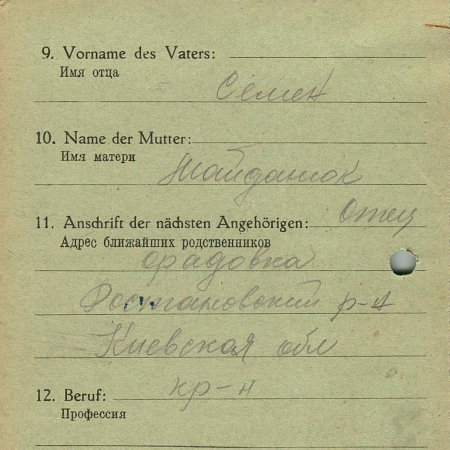 9. Vorname des Vaters:
Имя отца
Семен
10. Name der Mutter:
Имя матери
11. Anschrift der nächsten Angehörigen: Отец
Адрес ближайших родственников
р-н
Киевская обл
12. Beruf: кр-н
Профессия